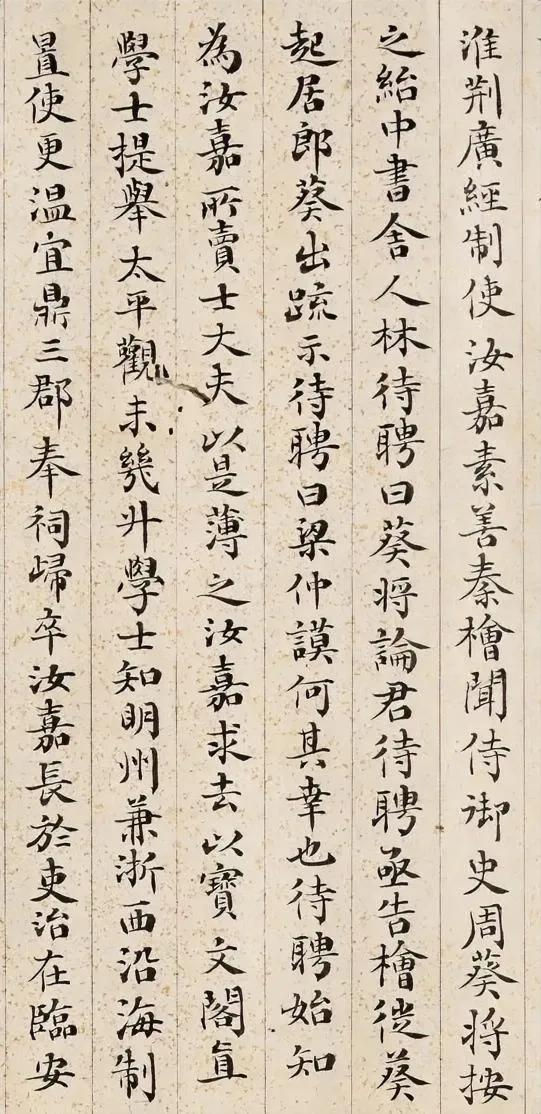 淮荆廣經制使汝嘉素善秦檜聞侍御史周葵將按
之紿中書舍人林待聘曰葵將論君待聘亟告檜徙葵
起居郎葵出䟽示待聘曰梁仲謨何其幸也待聘始知
為汝嘉所賣士大夫以是薄之汝嘉求去以寶文閣直
學士提舉太平觀未幾升學士知明州兼浙西沿海制
置使更温宣鼎三郡奉祠歸卒汝嘉長於吏治在臨安